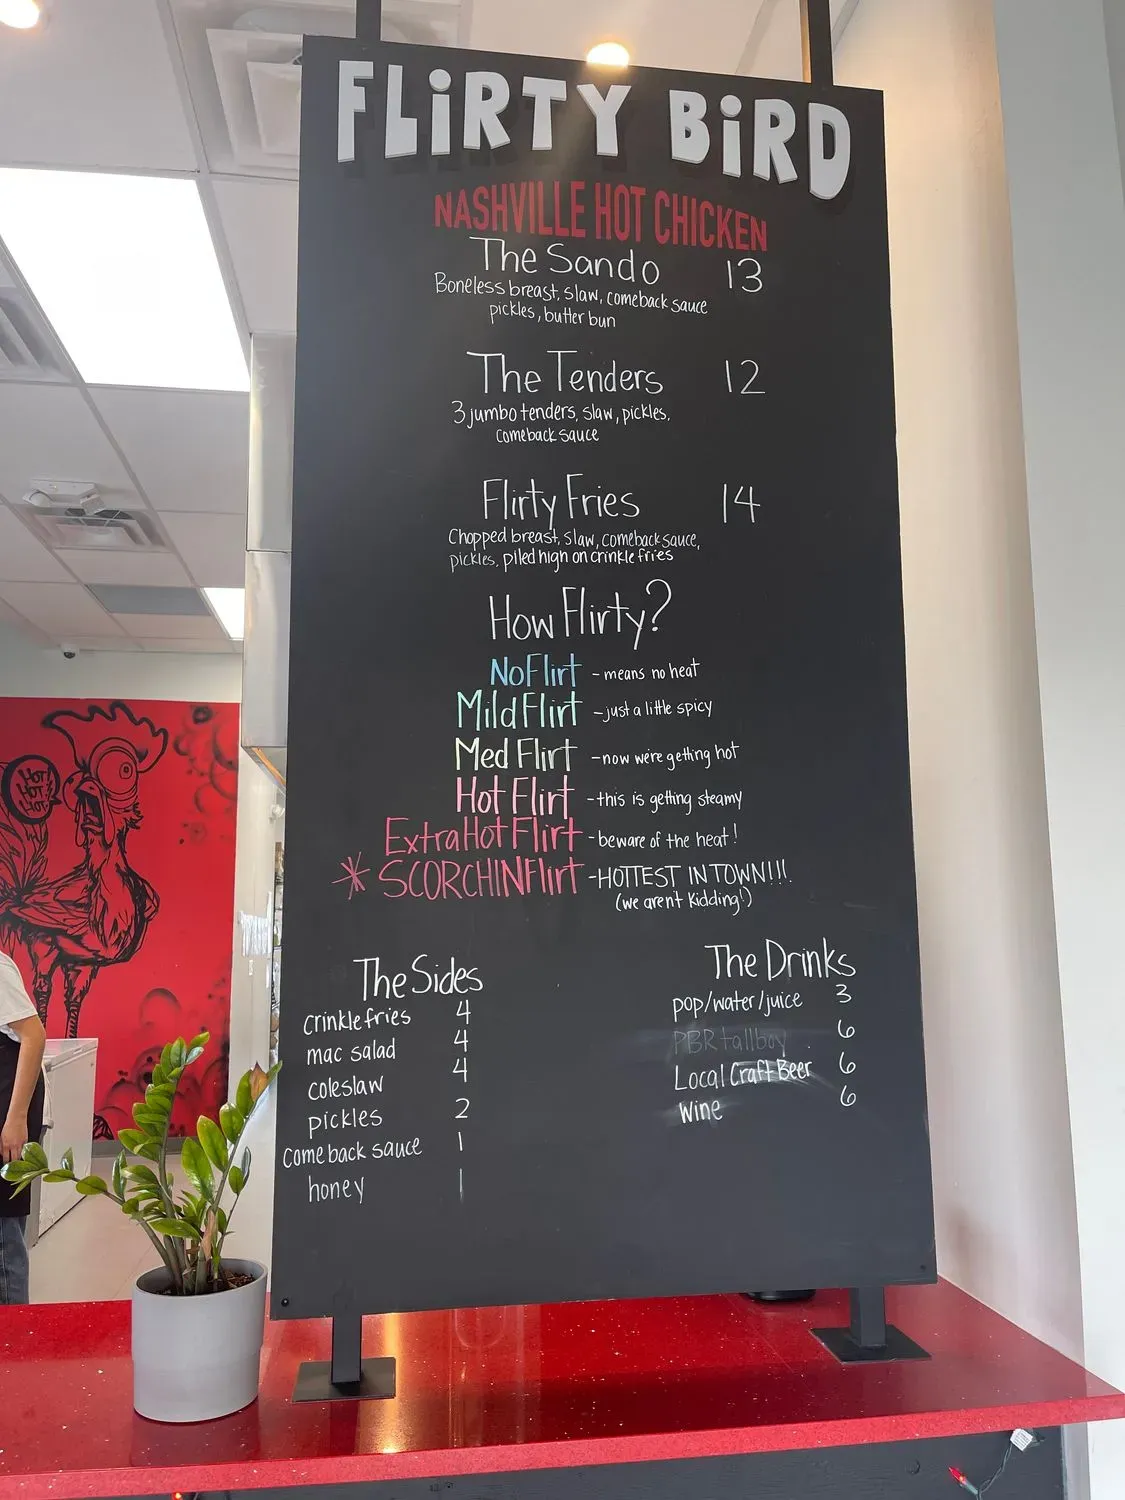 FLiRTY BiRD
NASHVILLE HOT CHICKEN
The Sando 13
Boneless breast, slaw, comeback sauce
pickles, butter bun
The Tenders 12
3 jumbo tenders, slaw, pickles,
comeback sauce
Flirty Fries 14
Chopped breast, slaw, comeback sauce,
pickles, piled high on crinkle fries
How Flirty?
No Flirt - means no heat
Mild Flirt - just a little spicy
Med Flirt - now we're getting hot
Hot Flirt - this is getting steamy
Extra Hot Flirt - beware of the heat!
* SCORCHIN Flirt - HOTTEST IN TOWN!!!
(we aren't kidding!)
The Sides
crinkle fries 4
mac salad 4
coleslaw 4
pickles 2
comeback sauce 1
honey 1
The Drinks
pop/water/juice 3
PBR tallboy 6
Local Craft Beer 6
wine 6
Hot!
Hot
Hot